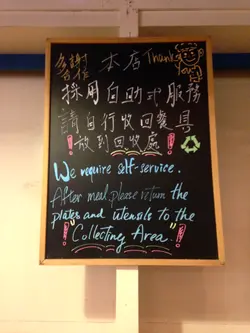 多謝合作
本店 Thank You!
採用自助式服務
請自行收回餐具
!放到回收處!
We require self-service.
After meal, please return the
plates and utensils to the
!"Collecting Area"!